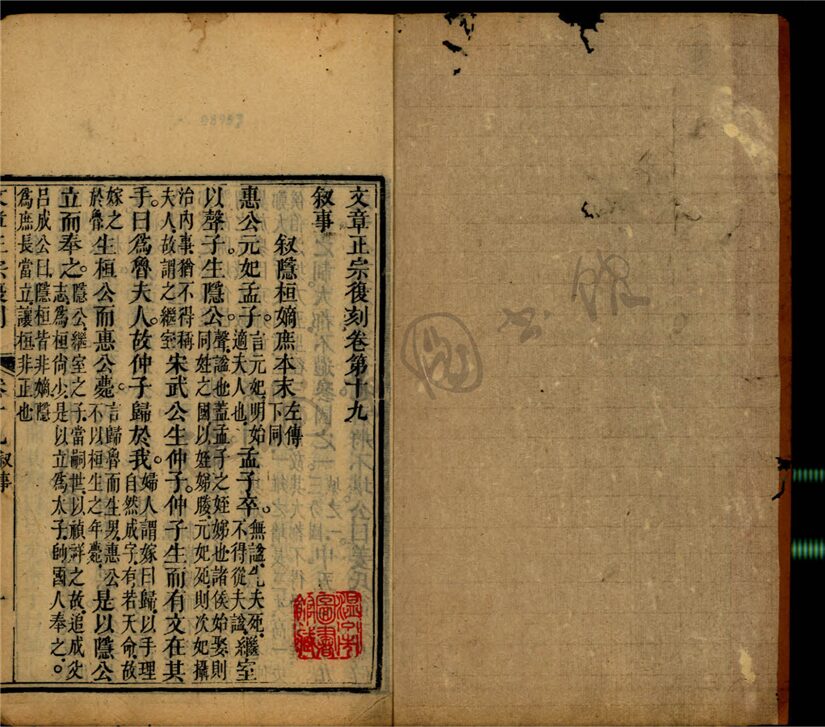 文章正宗復刻卷第十九
敘事
敘隱桓嫡庶本末左傳下同
惠公元妃孟子言元妃明始適夫人也孟子卒無謚先夫死不得從夫謚繼室
以聲子生隱公聲謚也蓋孟子之姪娣也諸侯始娶則同姓之國以姪娣媵元妃死則次妃攝
治內事猶不得稱夫人故謂之繼室宋武公生仲子仲子生而有文在其
手曰為魯夫人故仲子歸於我婦人謂嫁曰歸以手理自然成字有若天命故
嫁之於魯生桓公而惠公薨言歸魯而生男惠公不以桓生之年薨是以隱公
立而奉之隱公繼室之子當嗣世以禎祥之故追成父志為桓尚少是以立為太子帥國人奉之
呂成公曰隱桓皆非嫡隱為庶長當立讓桓非正也
卷十九 敘事
溫州圖書館藏
圖